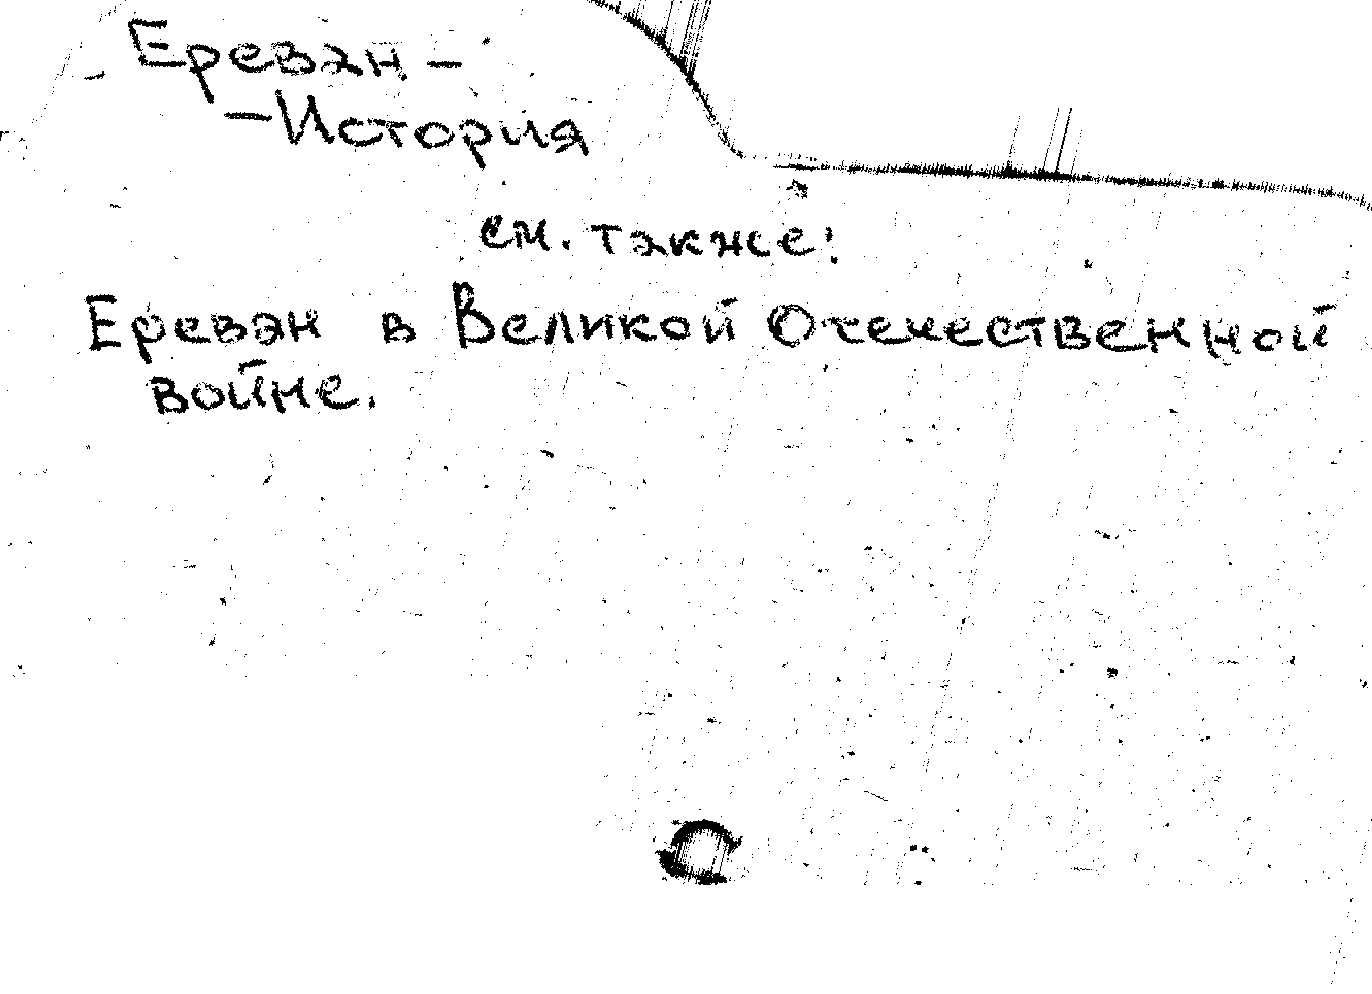 Ереван –
– История
см. также:
Ереван в Великой Отечественной
войне.